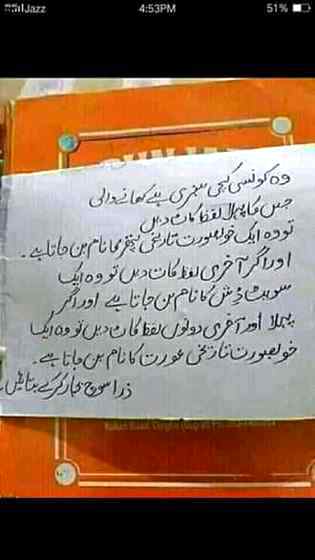 Jazz 4:53PM 51%
وہ کونسی کچی سبزی ہے کھانے والی
جس کا پہلا لفظ کاٹ دیں
تو وہ ایک خوبصورت تاریخی پتھر کا نام بن جاتا ہے۔
اور اگر آخری لفظ کاٹ دیں تو وہ ایک
سویٹ ڈش کا نام بن جاتا ہے اور اگر
پہلا اور آخری دونوں لفظ کاٹ دیں تو وہ ایک
خوبصورت تاریخی عورت کا نام بن جاتا ہے۔
ذرا سوچ بچار کر کے بتائیں۔